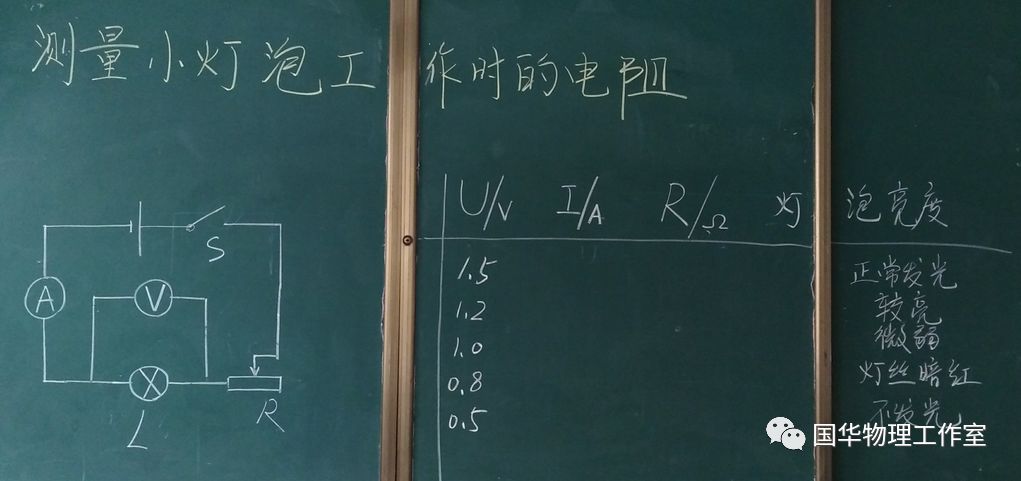 测量小灯泡工作时的电阻
U/V I/A R/Ω 灯泡亮度
S
1.5 正常发光
A V
1.2 较亮
1.0 微弱
0.8 灯丝暗红
R
L
0.5 不发光
国华物理工作室